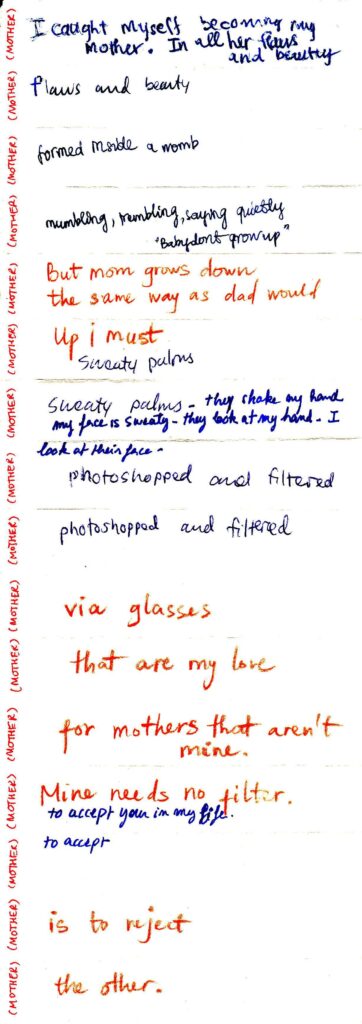 I caught myself becoming my
mother. In all her flaws
and beauty
flaws and beauty
formed inside a womb
mumbling, trembling, saying quietly
"Baby dont grow up"
But mom grows down
the same way as dad would
Up i must
Sweaty palms
Sweaty palms - they shake my hand
my face is sweaty - they look at my hand - I
look at their face -
photoshopped and filtered
photoshopped and filtered
via glasses
that are my love
for mothers that aren't
mine.
Mine needs no filter.
to accept your in my life.
to accept
is to reject
the other.
(MOTHER) (MOTHER) (MOTHER) (MOTHER) (MOTHER) (MOTHER) (MOTHER) (MOTHER) (MOTHER) (MOTHER) (MOTHER) (MOTHER) (MOTHER) (MOTHER) (MOTHER)